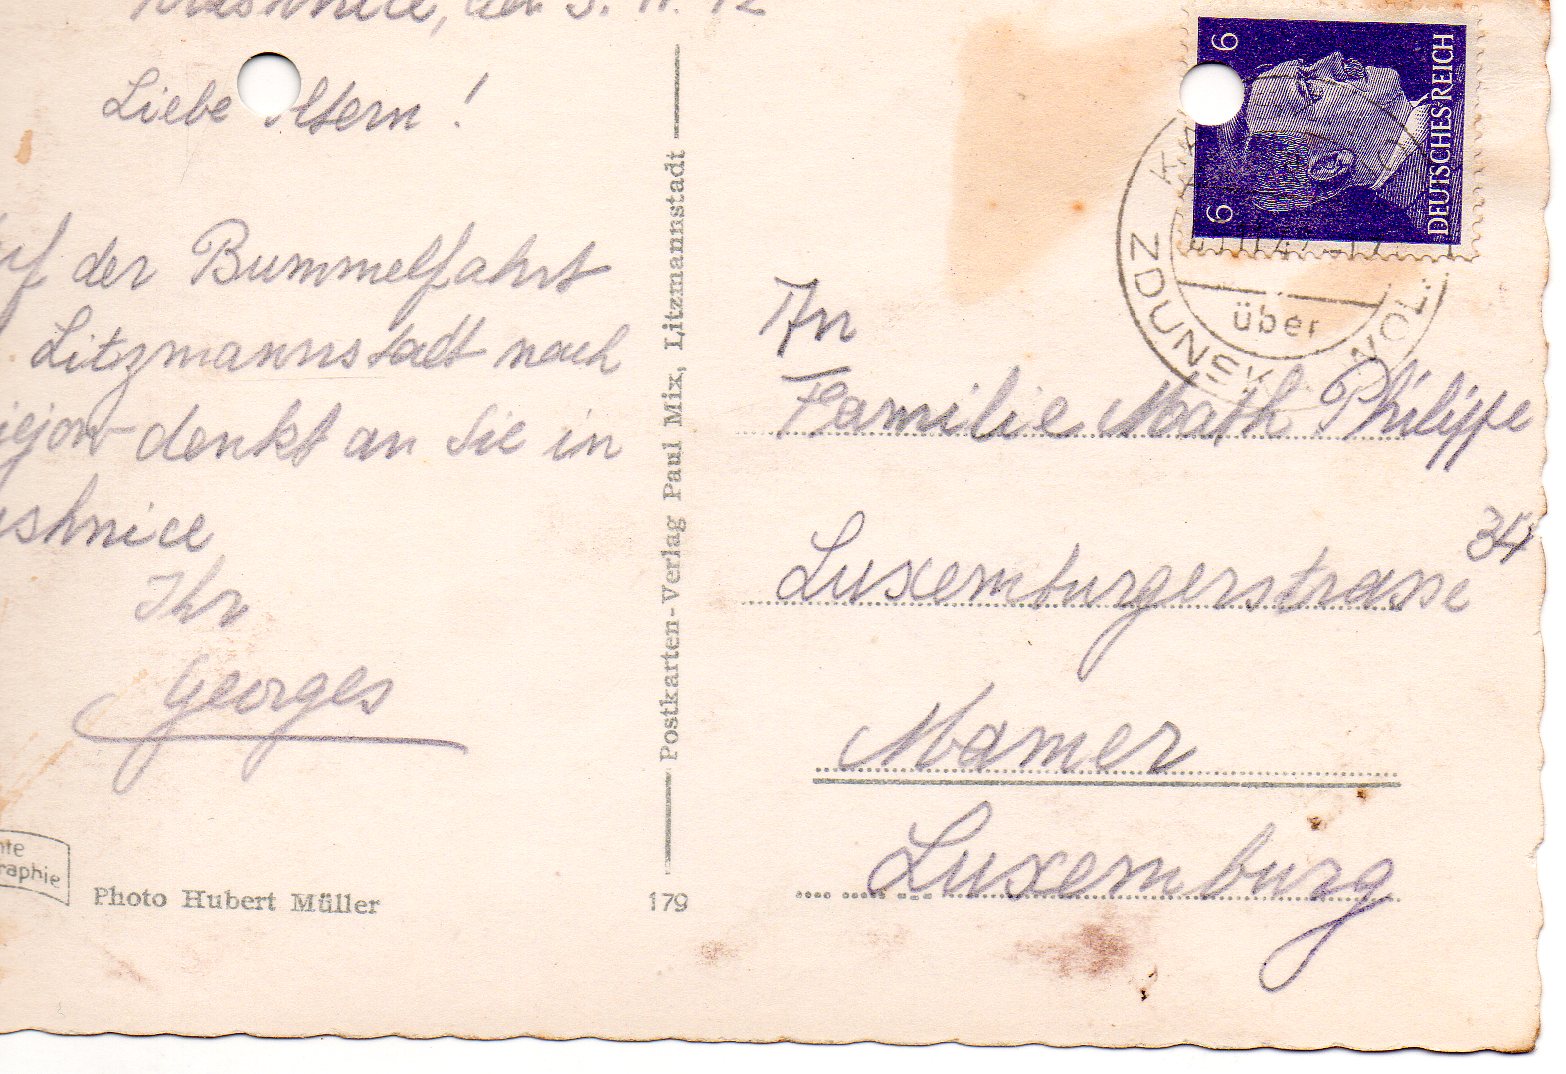 den 3. 11. 42
Liebe Eltern !
der Bummelfahrt
Litzmannstadt nach
denkt an Sie in
Ihr
Georges
Photo Hubert Müller
179
Postkarten-Verlag Paul Mix, Litzmannstadt
6 6
DEUTSCHES REICH
ZDUNSKA WOL.
über
An
Familie Math Philippe
34
Luxemburgerstrasse
Mamer
Luxemburg